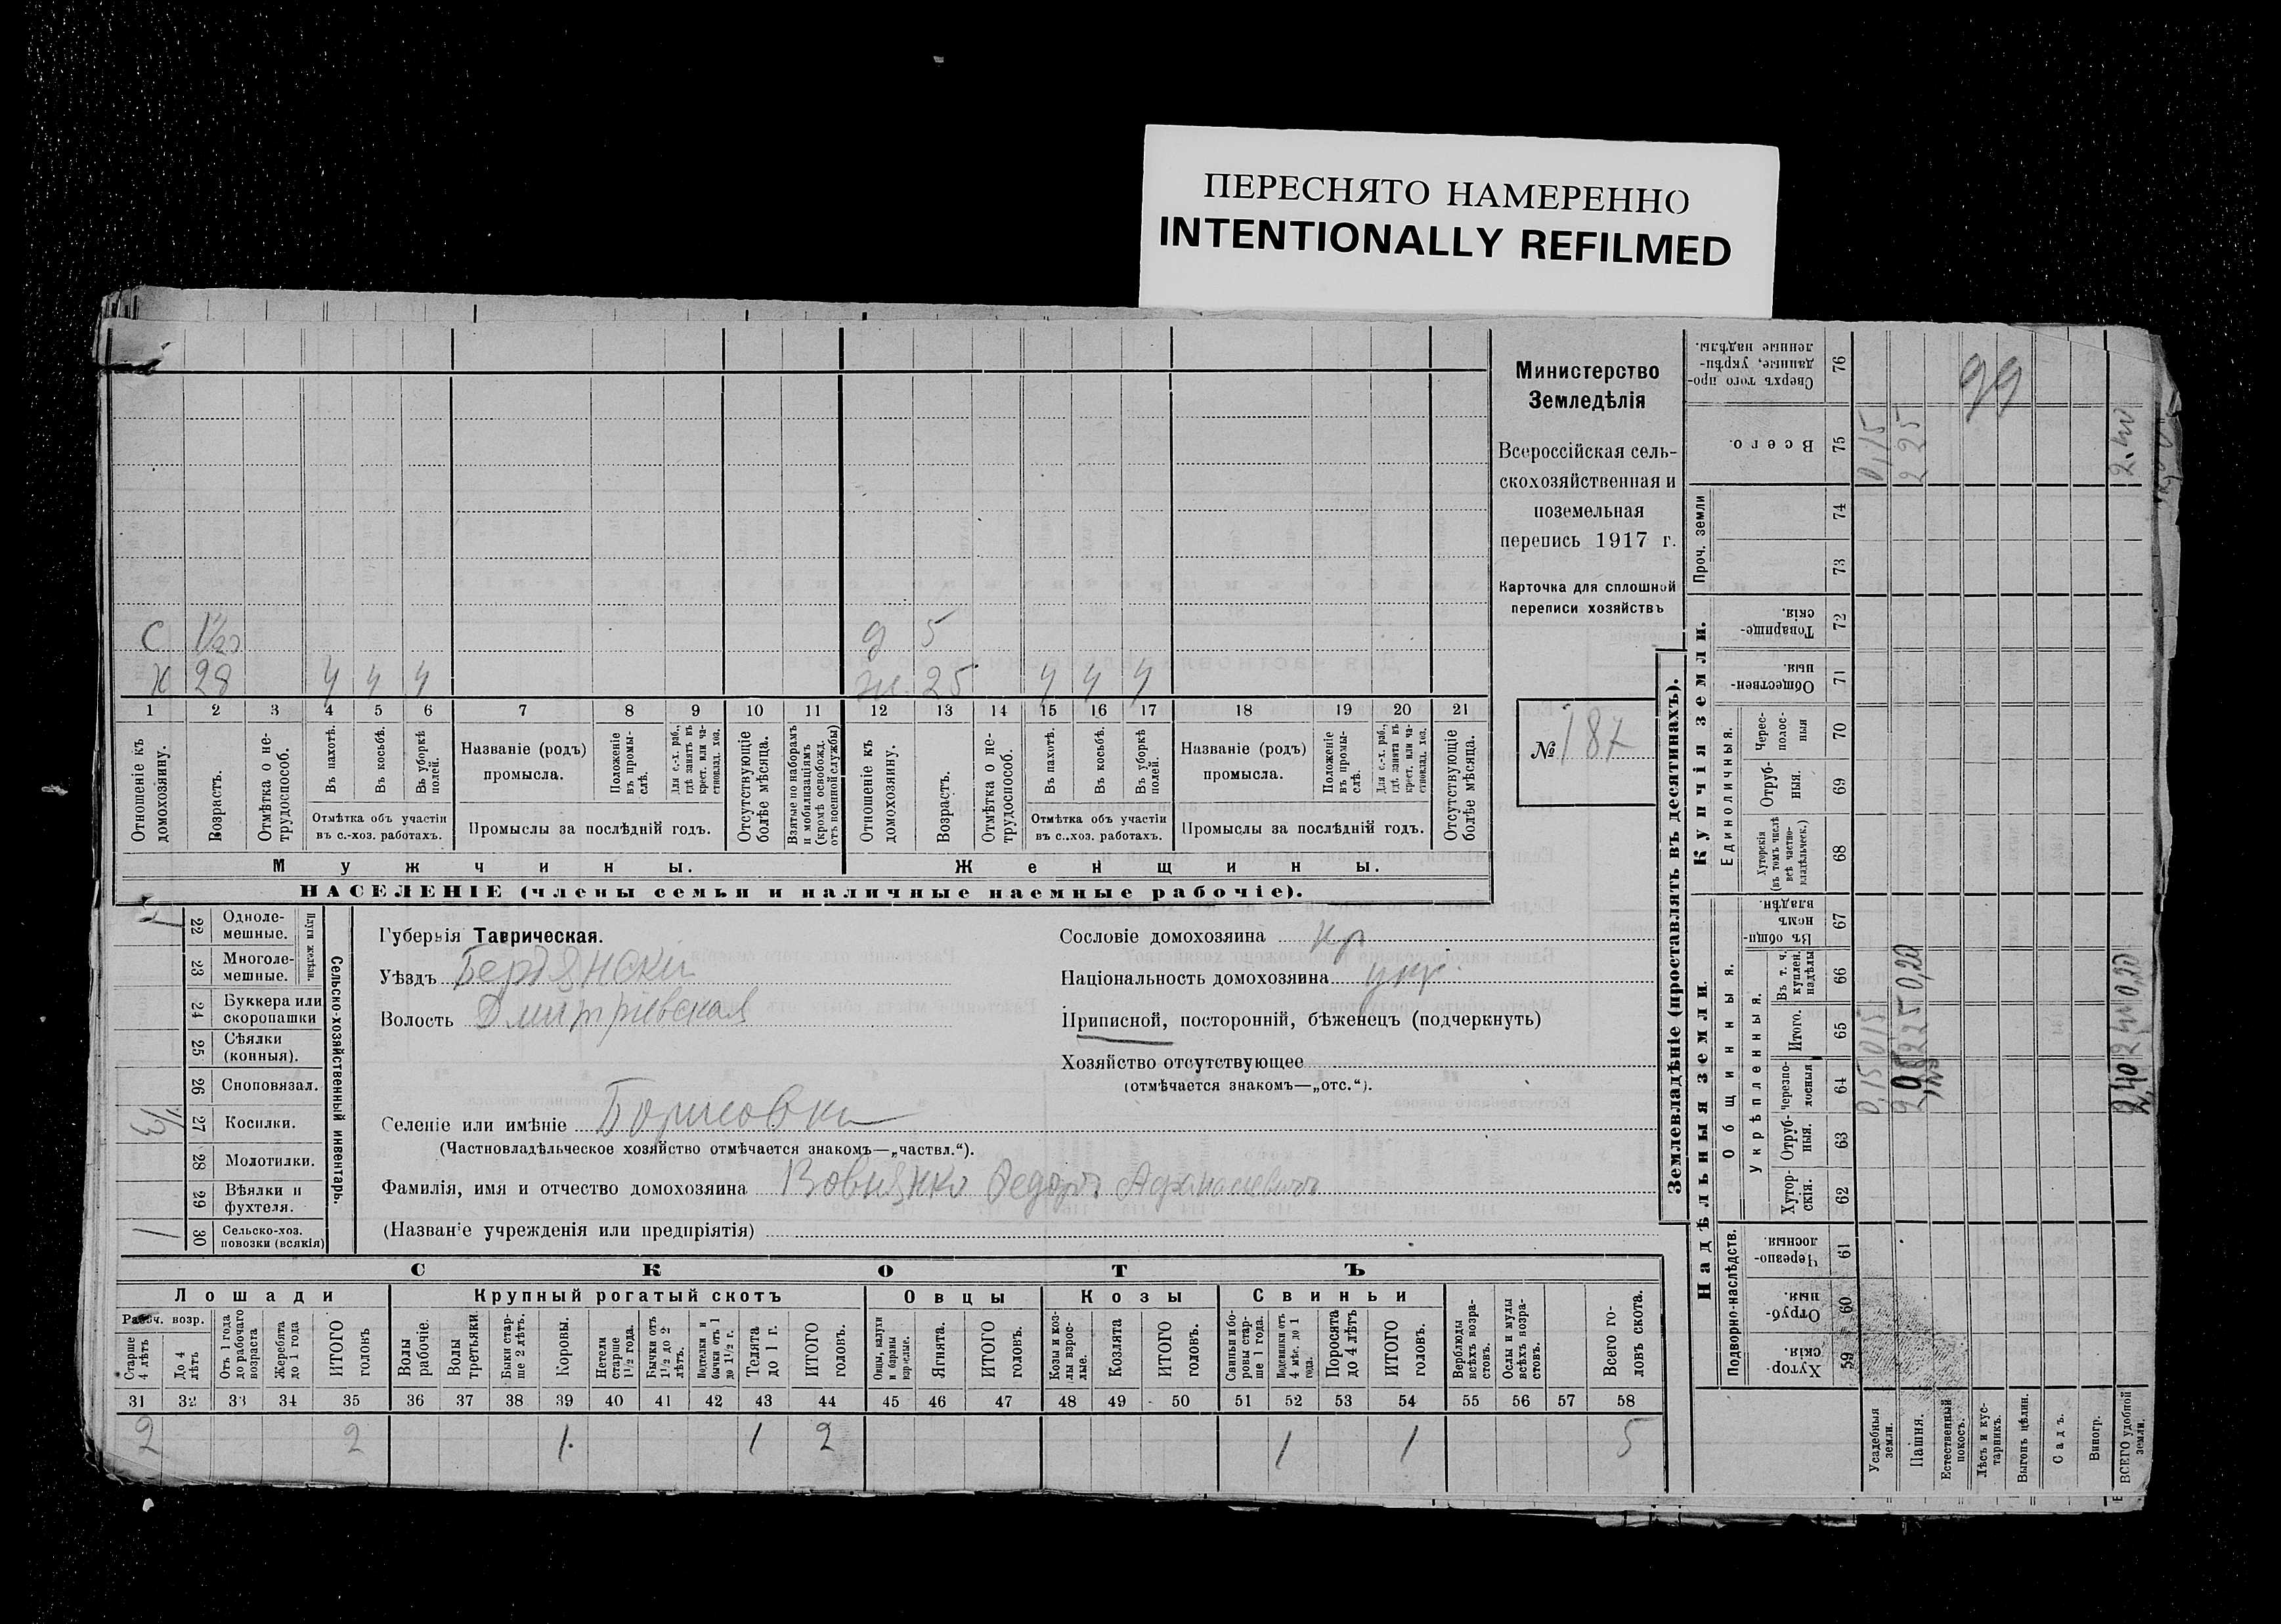 ПЕРЕСНЯТО НАМЕРЕННО
INTENTIONALLY REFILMED
Министерство
Земледѣлія
Всероссійская сель-
скохозяйственная и
поземельная
перепись 1917 г.
Карточка для сплошной
переписи хозяйствъ
№ 187
С 1/20 д 5
Х 28 ч ч ч ж. 25 ч ч ч
1 2 3 4 5 6 7 8 9 10 11 12 13 14 15 16 17 18 19 20 21
Отношеніе къ домохозяину.
Возрастъ.
Отмѣтка о не-трудоспособ.
Въ пахотѣ.
Въ косьбѣ.
Въ уборкѣ полей.
Отмѣтка объ участіи
въ с.-хоз. работахъ.
Названіе (родъ)
промысла.
Положеніе въ промы-слѣ.
Для с.-х. раб., гдѣ занятъ въ крест. или ча-стновлад. хоз.
Промыслы за послѣдній годъ.
Отсутствующіе болѣе мѣсяца.
Взятые по наборамъ и мобилизаціямъ (кромѣ освобожд. отъ военной службы)
Отношеніе къ домохозяину.
Возрастъ.
Отмѣтка о не-трудоспособ.
Въ пахотѣ.
Въ косьбѣ.
Въ уборкѣ полей.
Отмѣтка объ участіи
въ с..хоз. работахъ.
Названіе (родъ)
промысла.
Положеніе въ промы-слѣ.
Для с.-х. раб., гдѣ занята въ крест. или ча-стновлад. хоз.
Промыслы за послѣдній годъ.
Отсутствующіе болѣе мѣсяца.
Мужчины. Женщины.
НАСЕЛЕНІЕ (члены семьи и наличные наемные рабочіе).
Сельско-хозяйственный инвентарь.
Плуги желѣзн.
22 Одноле-мешные. 1
23 Многоле-мешные.
24 Буккера или скоропашки
25 Сѣялки (конныя).
26 Сноповязал.
27 Косилки. 1/3
28 Молотилки.
29 Вѣялки и фухтеля.
30 Сельско-хоз. повозки (всякія) 1
Губернія Таврическая.
Уѣздъ Бердянски
Волость Дмитріевская
Селеніе или имѣніе Борисовка
(Частновладѣльческое хозяйство отмѣчается знакомъ—„частвл.“).
Фамилія, имя и отчество домохозяина Вовнянко Федоръ Афанасіевичъ
(Названіе учрежденія или предпріятія)
Сословіе домохозяина кр
Національность домохозяина укр.
Приписной, посторонній, бѣженецъ (подчеркнуть)
Хозяйство отсутствующее
(отмѣчается знакомъ—„отс.“).
СКОТЪ
Лошади Крупный рогатый скотъ Овцы Козы Свиньи
Рабоч. возр.
Старше 4 лѣтъ
До 4 лѣтъ
Отъ 1 года до рабочаго возраста
Жеребята до 1 года
ИТОГО головъ
Волы рабочіе.
Волы третьяки.
Быки стар-ше 2 лѣтъ.
Коровы.
Нетели старше 1½ года.
Бычки отъ 1½ до 2 лѣтъ.
Подтелки и бычки отъ 1 до 1½ г.
Телята до 1 г.
ИТОГО головъ.
Овцы, валухи и бараны взрослые.
Ягнята.
ИТОГО головъ.
Козы и коз-лы взрос-лые.
Козлята
ИТОГО головъ.
Свиньи и бо-ровы стар-ше 1 года.
Подсвинки отъ 4 мѣс. до 1 года.
Поросята до 4 лѣтъ
ИТОГО головъ.
Верблюды всѣхъ возра-стовъ.
Ослы и мулы всѣхъ возра-стовъ.
Всего го-ловъ скота.
31 32 33 34 35 36 37 38 39 40 41 42 43 44 45 46 47 48 49 50 51 52 53 54 55 56 57 58
2 2 1 1 2 1 1 5
Землевладѣніе (проставлять въ десятинахъ).
Надѣльныя земли. Купчія земли. Проч. земли
Подворно-наслѣдств.
Общинныя.
Укрѣпленныя.
Единоличныя.
Хутор-скія. 59
Отруб-ныя. 60
Черезпо-лосныя. 61
Хутор-скія. 62
Отруб-ныя. 63
Черезпо-лосныя 64
Итого. 65
Въ т. ч. куплен. надѣлы 66
Въ общи-номъ владѣн. 67
Хуторскія (въ томъ числѣ всѣ частно-владѣльческ.) 68
Отруб-ныя. 69
Черес-полос-ныя 70
Обществен-ныя. 71
Товарище-скія. 72
73
74
Всего. 75
Сверхъ того про-данные, укрѣп-ленные надѣлы. 76
Усадебныя земли. 0,15 0,15 0,15
Пашня. 2 25 0,20 2 25
Естественный покосъ.
Лѣсъ и кус-тарникъ.
Выгонъ цѣлин.
Садъ.
Виногр.
ВСЕГО удобной земли. 2,40 0,20 2.40
99